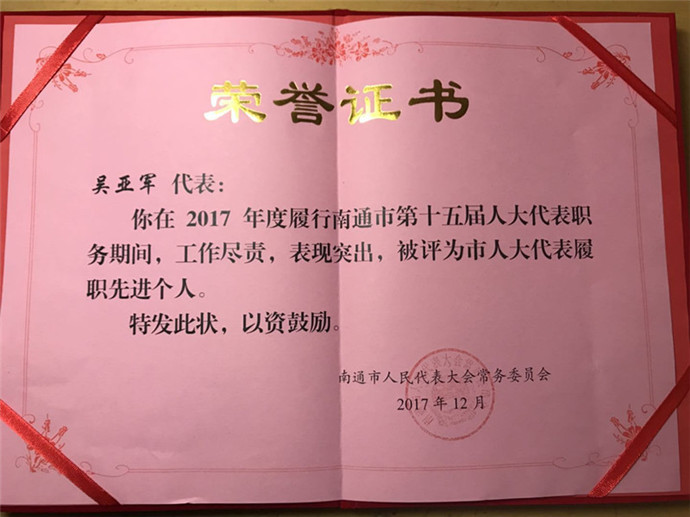 荣誉证书
吴亚军 代表：
你在 2017 年度履行南通市第十五届人大代表职
务期间，工作尽责，表现突出，被评为市人大代表履
职先进个人。
特发此状，以资鼓励。
南通市人民代表大会常务委员会
2017 年 12 月